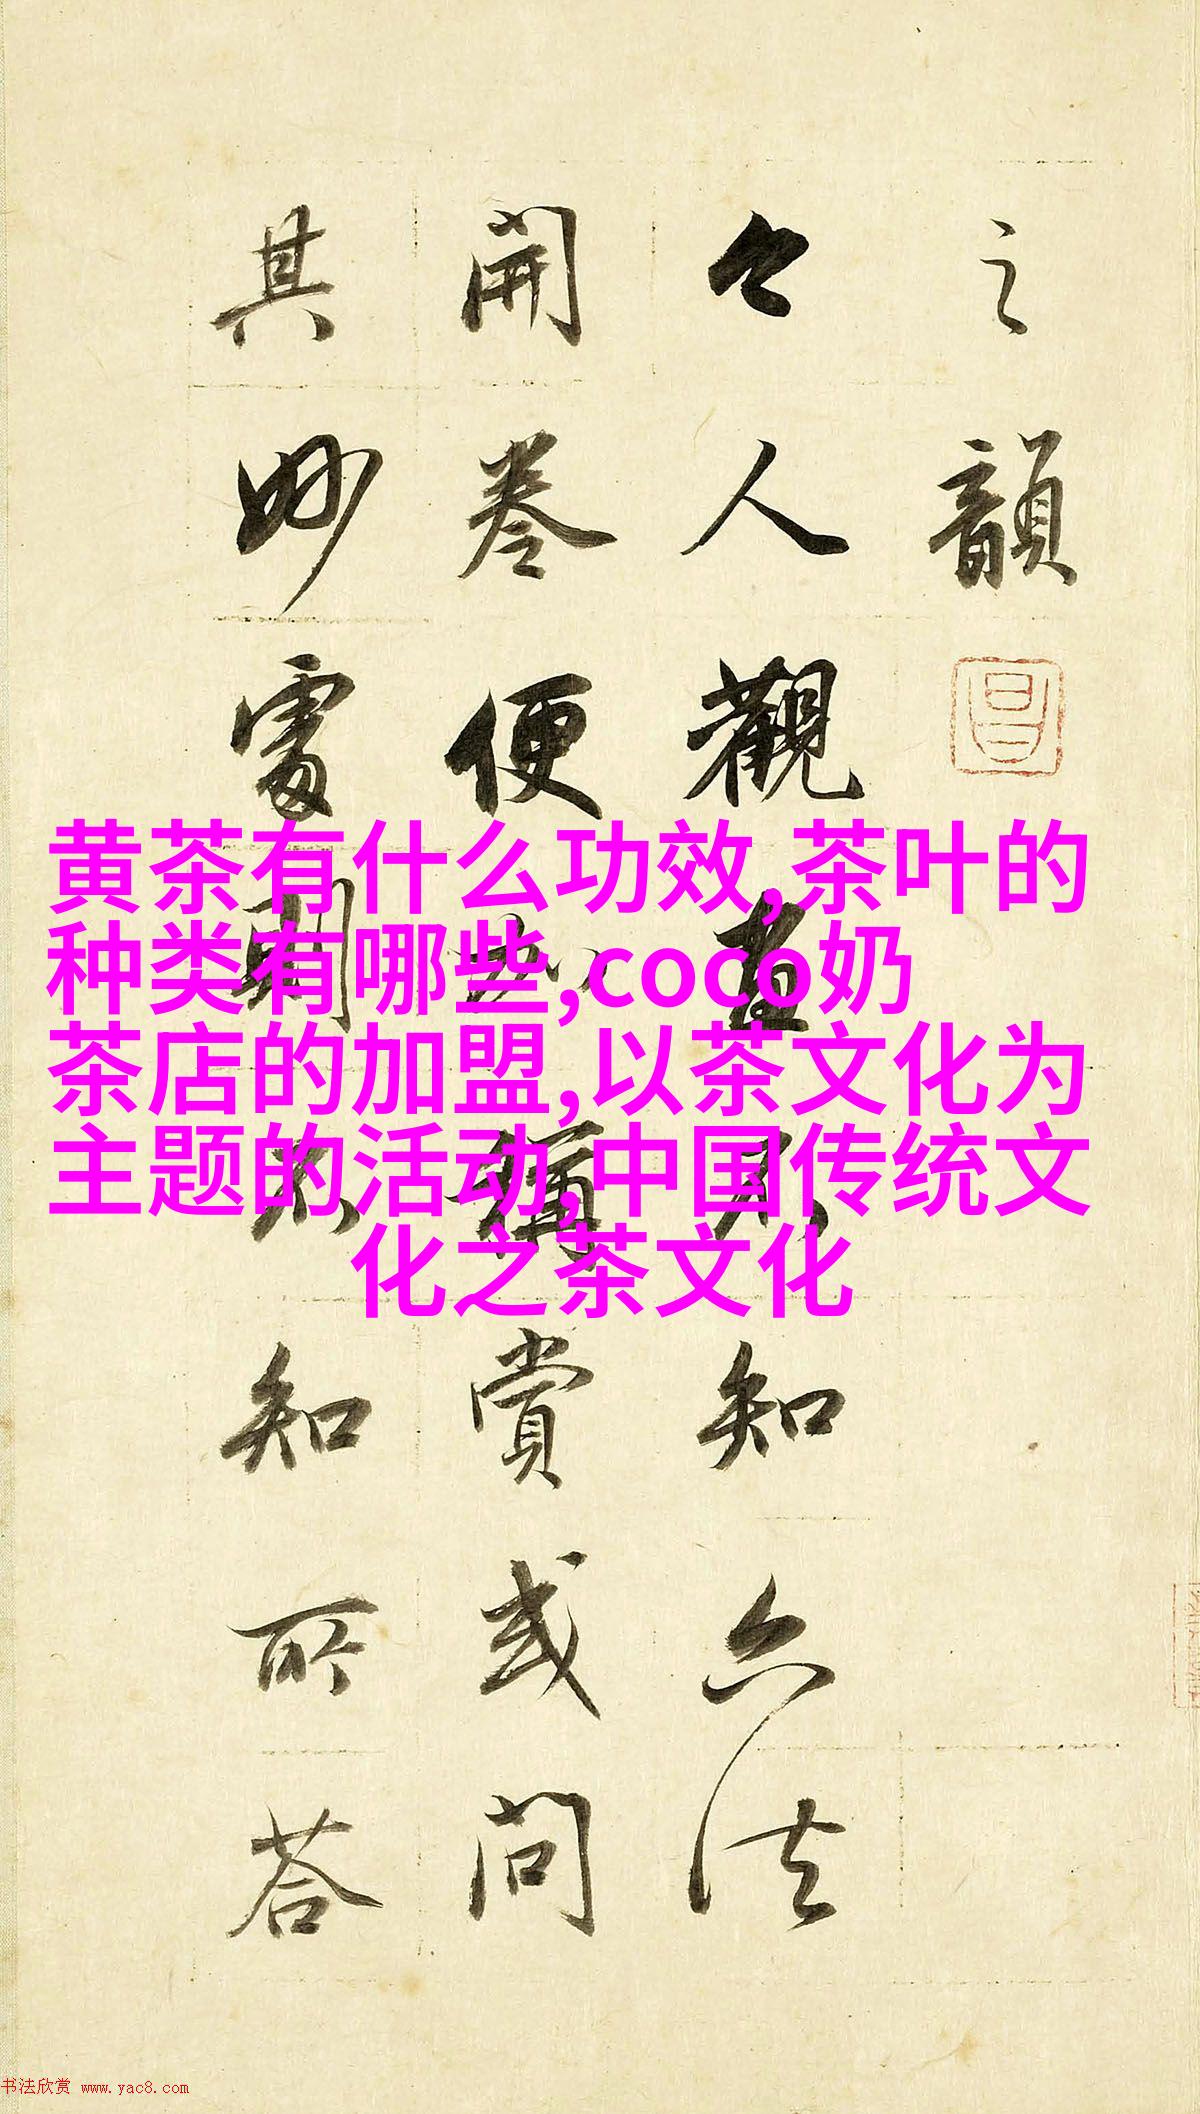 之韻
今人觀畫不知六法
開卷便加稱賞或問
其妙處不知所答
黄茶有什么功效,茶叶的
种类有哪些,coco奶
茶店的加盟,以茶文化为
主题的活动,中国传统文
化之茶文化
书法欣赏 www.yac8.com